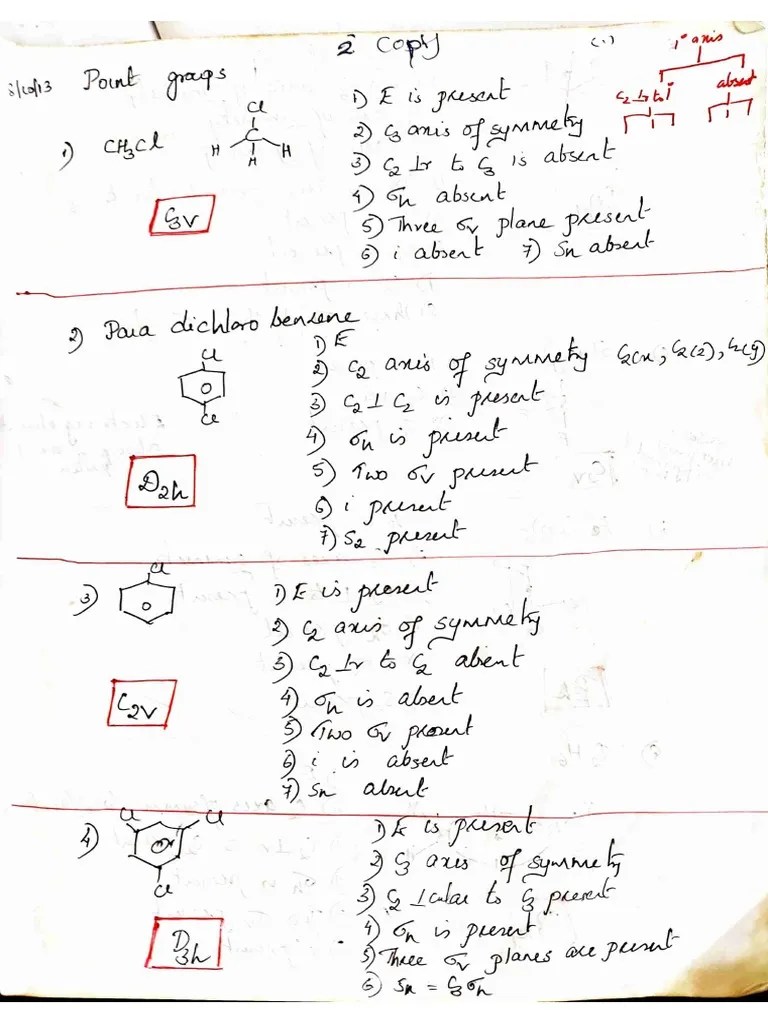 2 Copy
(1)
1° axis
C2 ⊥r to 1°
absent
3/10/13 Point groups
1) CH3Cl
Cl
C
H H H
C3V
1) E is present
2) C3 axis of symmetry
3) C2 ⊥r to C3 is absent
4) σh absent
5) Three σv plane present
6) i absent 7) Sn absent
2) Para dichloro benzene
Cl
Cl
D2h
1) E
2) C2 axis of symmetry C2(x), C2(z), C2(y)
3) C2 ⊥ C2 is present
4) σh is present
5) Two σv present
6) i present
7) S2 present
3)
Cl
C2V
1) E is present
2) C2 axis of symmetry
3) C2 ⊥r to C2 absent
4) σh is absent
5) Two σv present
6) i is absent
7) Sn absent
4)
Cl Cl
Cl
D3h
1) E is present
2) C3 axis of symmetry
3) C2 ⊥cular to C3 present
4) σh is present
5) Three σv planes are present
6) Sn = C3σh